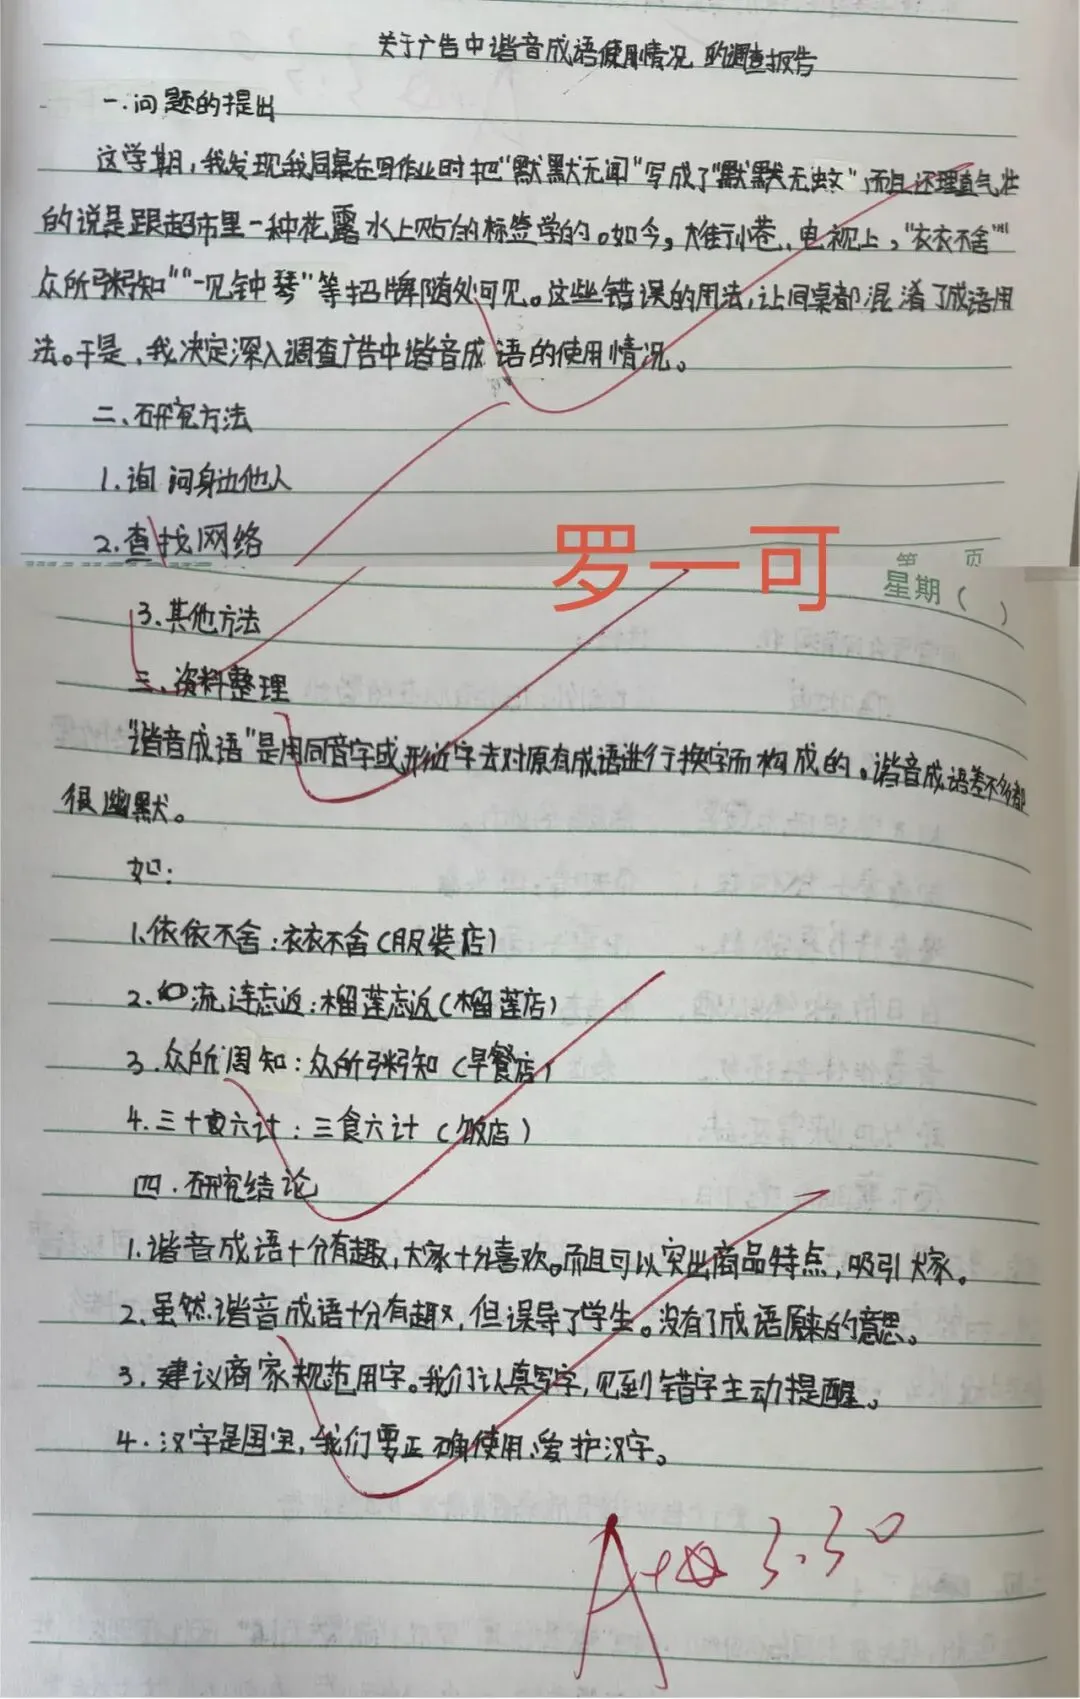 关于广告中谐音成语使用情况的调查报告
一.问题的提出
这学期,我发现我同桌在写作业时把"默默无闻"写成了"默默无蚊",而且还理直气壮
的说是跟超市里一种花露水上贴的标签学的。如今,大街小巷、电视上,"衣衣不舍""
众所粥知""一见钟琴"等招牌随处可见。这些错误的用法,让同桌都混淆了成语用
法。于是,我决定深入调查广告中谐音成语的使用情况。
二、研究方法
1.询问身边他人
2.查找网络
罗一可
第 页
星期( )
3.其他方法
三、资料整理
"谐音成语"是用同音字或形近字去对原有成语进行换字而构成的。谐音成语差不多都
很幽默。
如:
1.依依不舍:衣衣不舍(服装店)
2.流连忘返:榴莲忘返(榴莲店)
3.众所周知:众所粥知(早餐店)
4.三十六计:三食六计(饭店)
四.研究结论
1.谐音成语十分有趣,大家十分喜欢。而且可以突出商品特点,吸引大家。
2.虽然谐音成语十分有趣,但误导了学生。没有了成语原来的意思。
3.建议商家规范用字。我们认真写字,见到错字主动提醒。
4.汉字是国宝,我们要正确使用、爱护汉字。
A+☆ 3.30